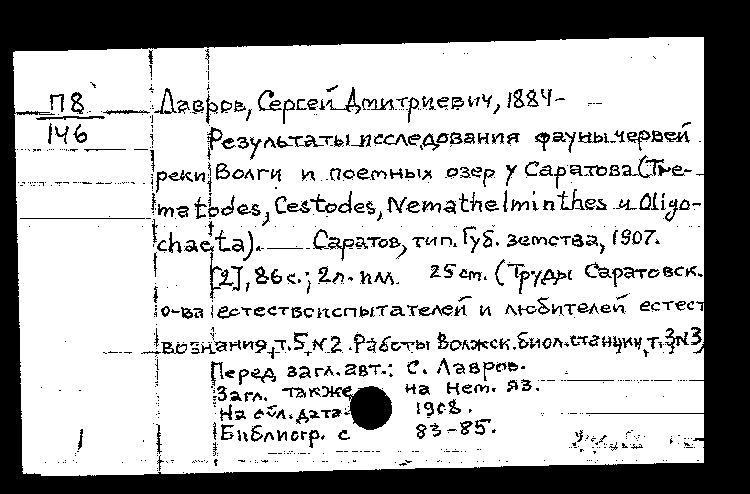 П8
146
Лавров, Сергей Дмитриевич, 1884-
Результаты исследования фауны червей
реки Волги и поемных озер у Саратова (Tre-
matodes, Cestodes, Nemathelminthes и Oligo-
chaeta). Саратов, тип. Губ. земства, 1907.
[2], 86 с.; 2 л. илл. 25 cm. (Труды Саратовск.
о-ва естествоиспытателей и любителей естест
вознания, т. 5, №2. Работы Волжск. биол. станции, т. 3 №3
Перед загл. авт.: С. Лавров.
Загл. также на нем. яз.
На обл. дата 1908.
Библиогр. с 83-85.